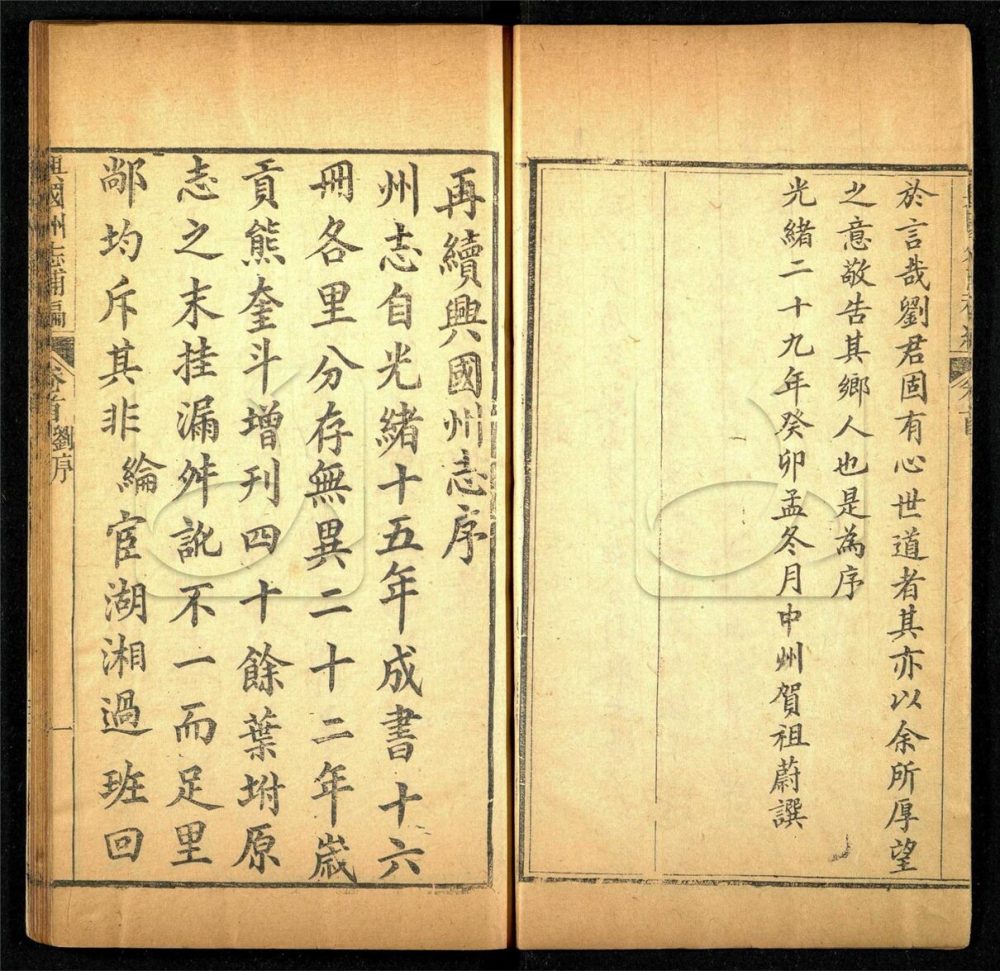 於言哉劉君固有心世道者其亦以余所厚望
之意敬告其鄉人也是為序
光緒二十九年癸卯孟冬月中州賀祖蔚譔
再續興國州志序
州志自光緒十五年成書十六
冊各里分存無異二十二年歲
貢熊奎斗增刊四十餘葉坿原
志之末挂漏舛訛不一而足里
鄙均斥其非 綸宦湖湘過班回
興國州志補編 卷首 劉序 一